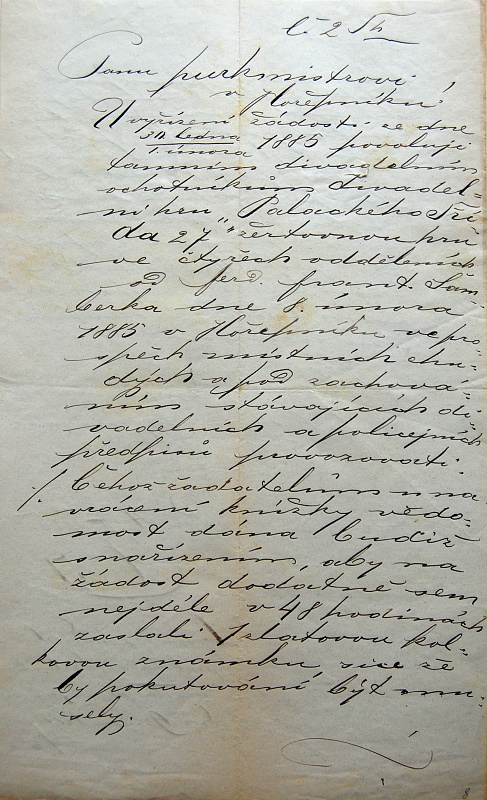 č. 2 Th
Panu purkmistrovi
v Hořepníku!
U vyřízení žádosti ze dne
31. ledna
1. února 1885 povoluji
tamním divadelním
ochotníkům divadel-
ní hru „Palackého tří
da 27" žertovnou hru
ve čtyřech odděleních
od Ferd. Frant. Šam-
berka dne 8. února
1885 v Hořepníku ve pro-
spěch místních chu-
dých a pod zachová-
ním stávajících di-
vadelních a policejních
předpisů provozovati.
Čehož žadatelům u na-
vrácení knížky vědo-
most dána budiž
s nařízením, aby na
žádost dodatně sem
nejdéle v 48 hodinách
zaslali 1 zlatovou kol-
kovou známku, sice že
by pokutováni být mu-
sely.
8